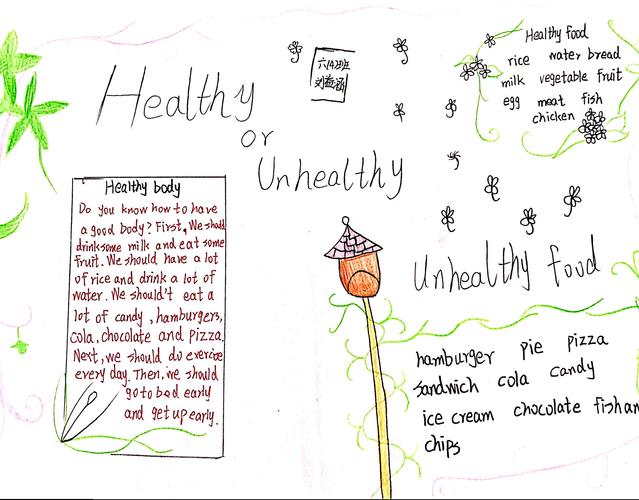 Healthy
or
Unhealthy
Healthy food
rice water bread
milk vegetable fruit
egg meat fish
chicken
Healthy body
Do you know how to have
a good body? First, We should
drink some milk and eat some
fruit. We should have a lot
of rice and drink a lot of
water. We should't eat a
lot of candy, hamburgers,
cola, chocolate and pizza.
Next, we should do exercise
every day. Then, we should
go to bed early
and get up early.
Unhealthy food
hamburger pie pizza
sandwich cola candy
ice cream chocolate fish an
chips